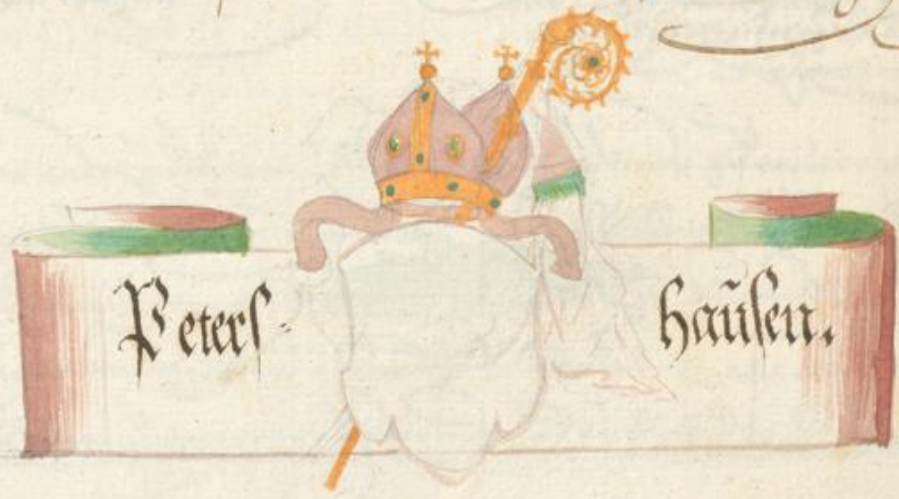 Peters- haüsen.